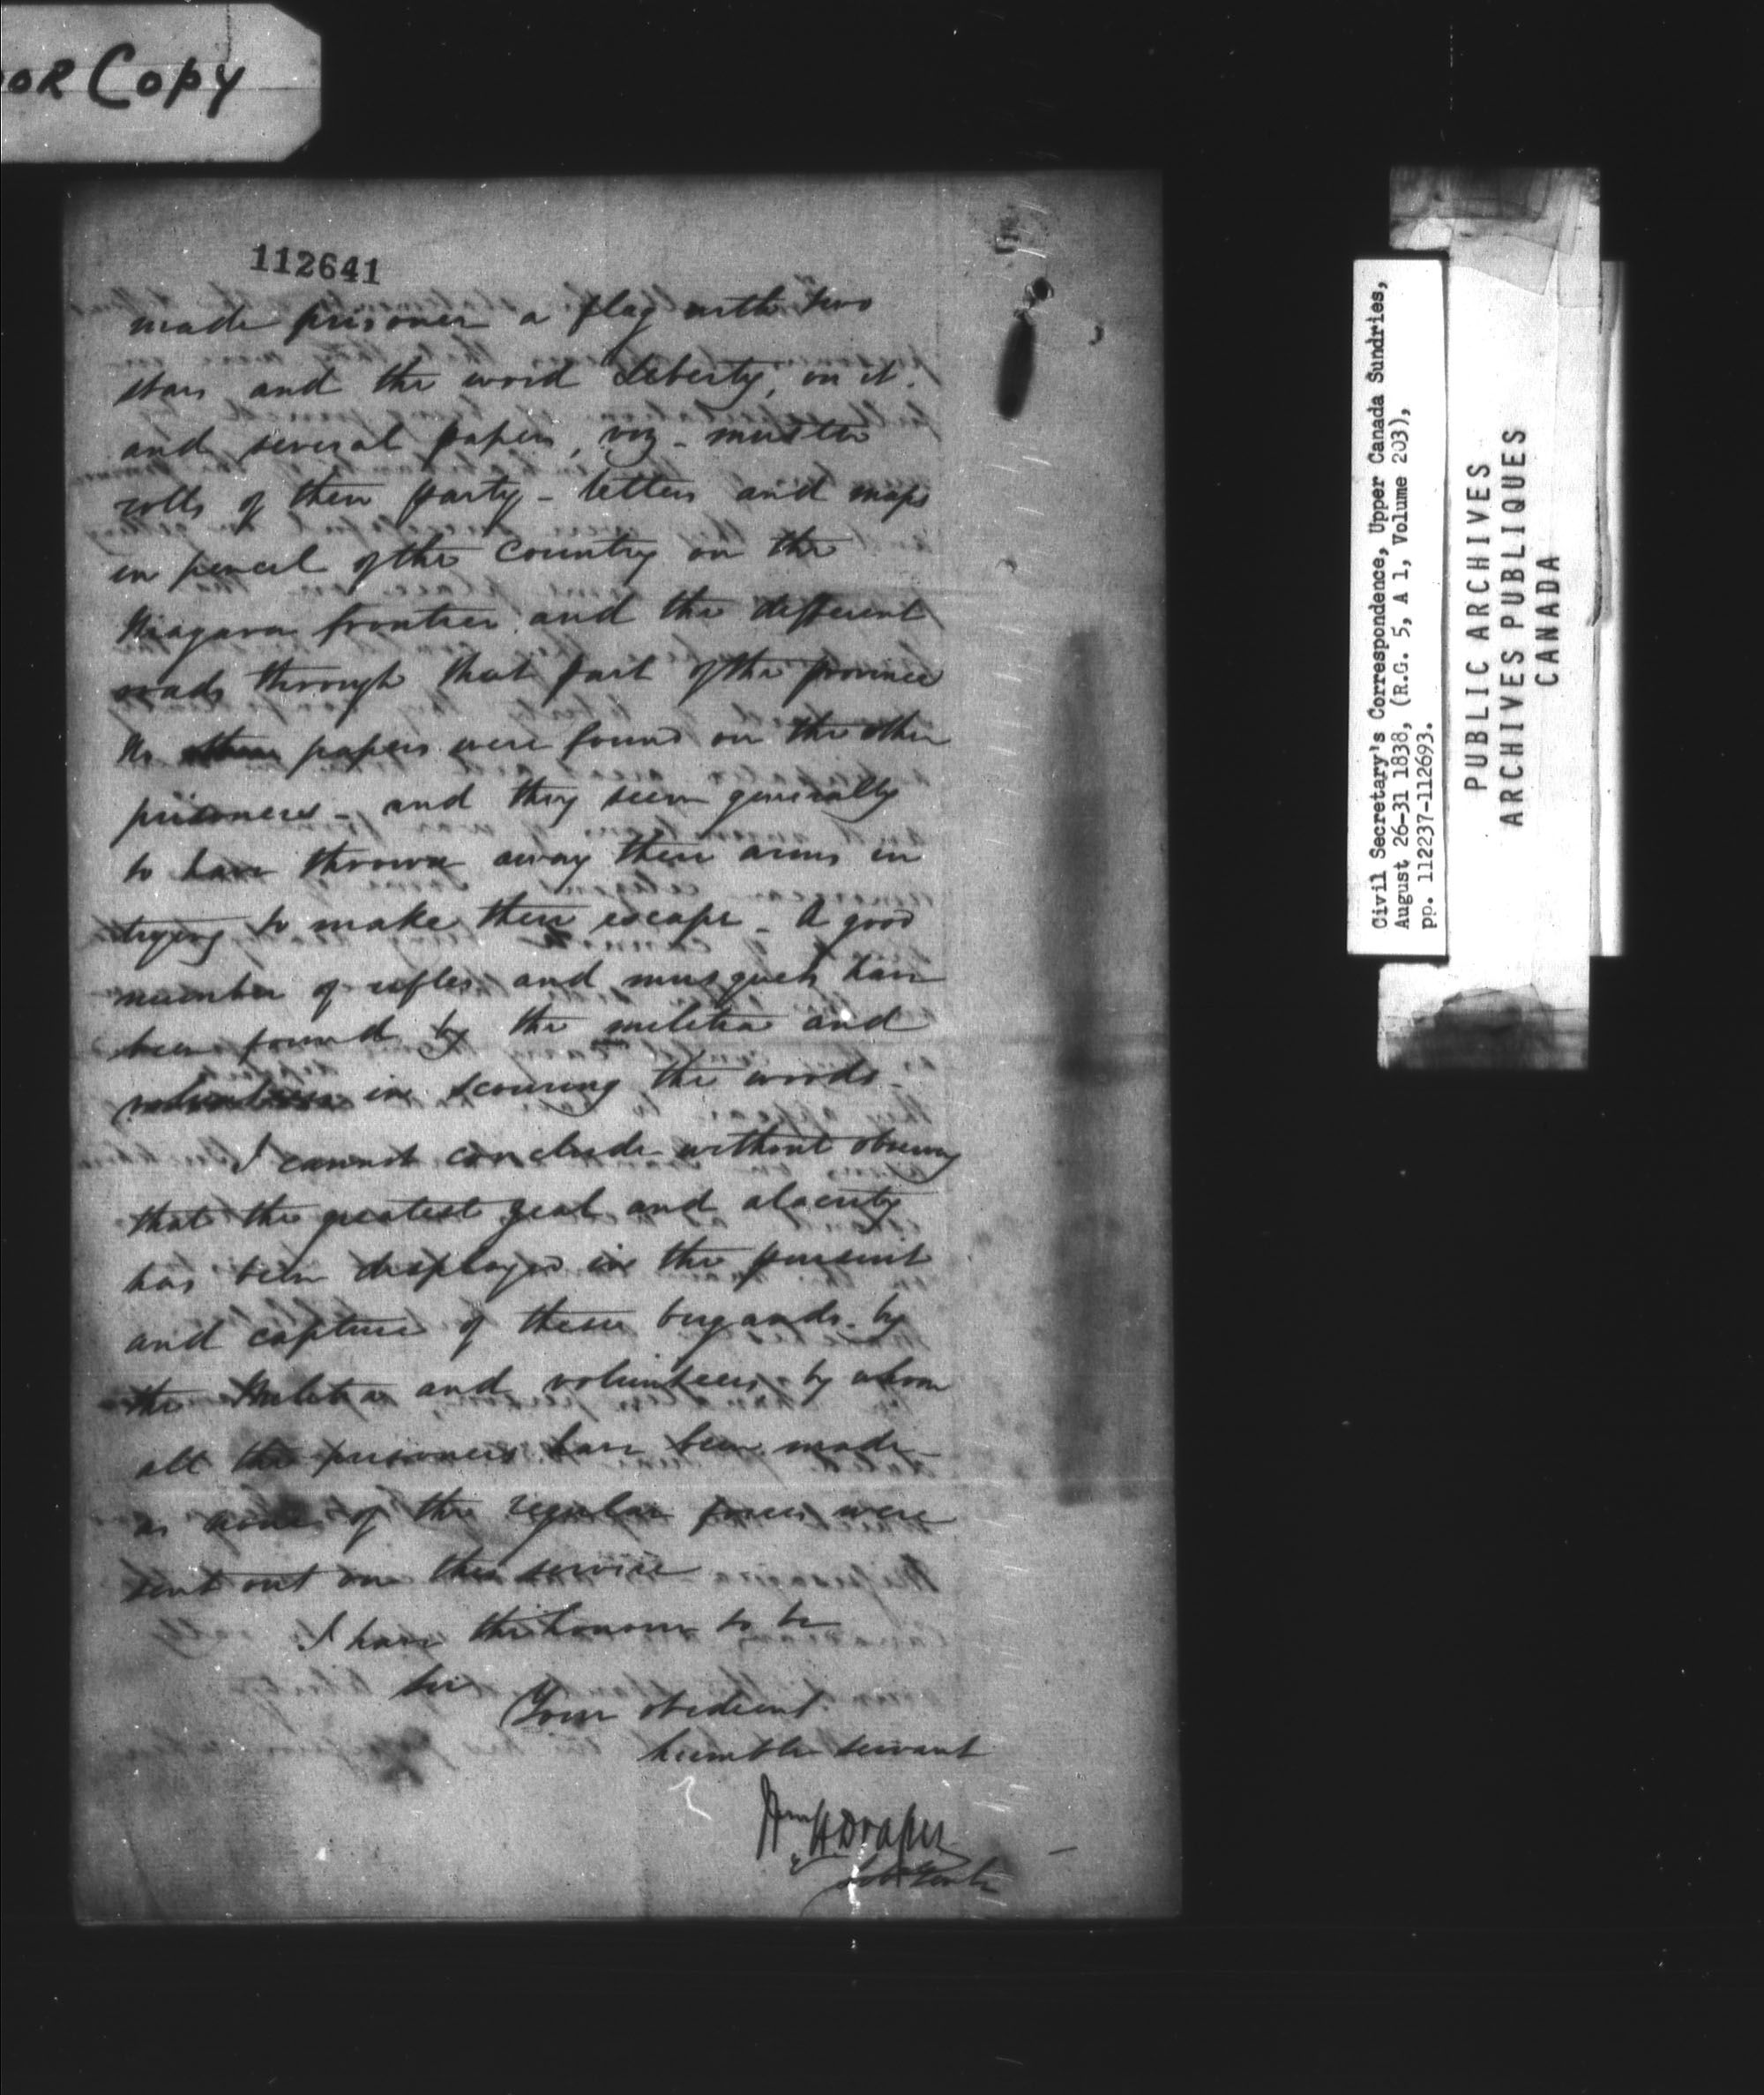 OOR Copy
112641
made prisoner a flag with two
stars and the word Liberty, on it.
and several papers, viz - muster
rolls of their party - letters and maps
in pencil of the Country on the
Niagara frontier and the different
roads through that part of the province
No papers were found on the other
prisoners - and they seem generally
to have thrown away their arms in
trying to make their escape - A good
number of rifles and musquets have
been found by the militia and
volunteers in scouring the woods -
I cannot conclude without observing
that the greatest zeal and alacrity
has been displayed in the pursuit
and capture of these brigands by
the Militia and volunteers, by whom
all the prisoners have been made -
as none of the regular forces were
sent out on this service
I have the honour to be
Sir
Your obedient
humble servant
Wm H Draper
Civil Secretary's Correspondence, Upper Canada Sundries,
August 26-31 1838, (R.G. 5, A 1, Volume 203),
pp. 112237-112693.
PUBLIC ARCHIVES
ARCHIVES PUBLIQUES
CANADA